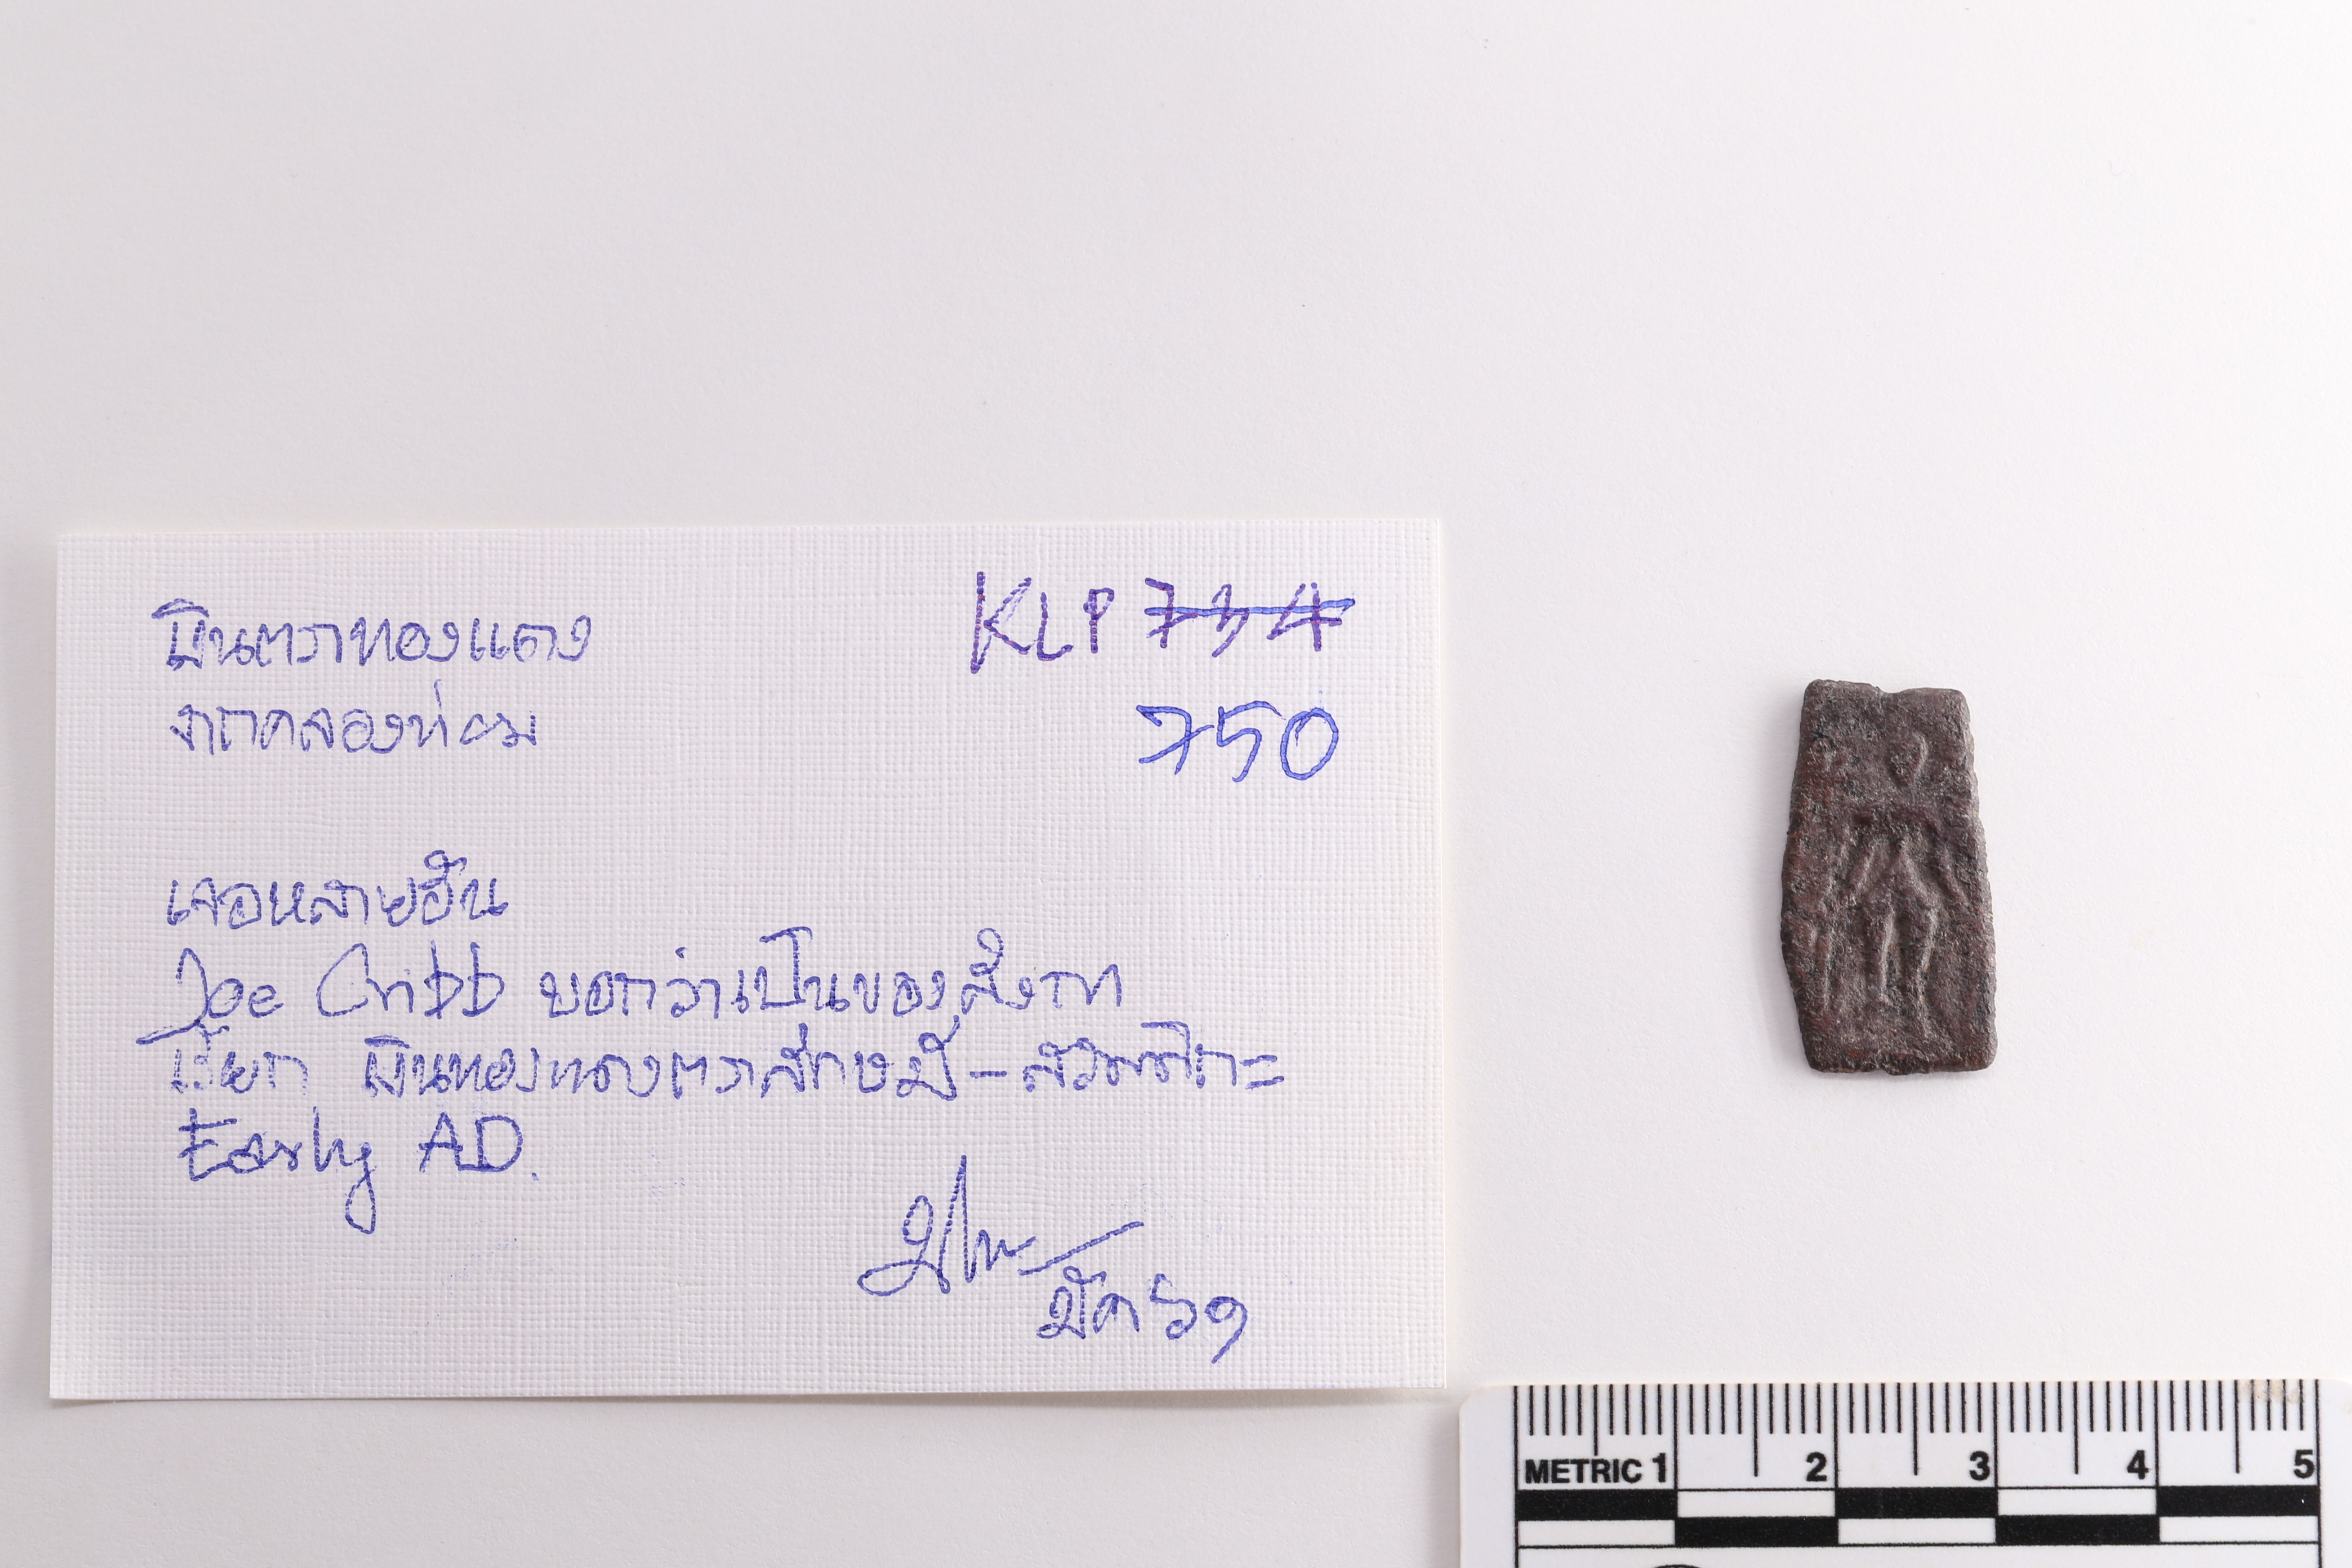 เงินตราทองแดง
จากคลองท่อม
KLP 734
750
เจอหลายอัน
Joe Cribb บอกว่าเป็นของลังกา
เรียก เงินทองแดงตราลักษมี-สวัสดิกะ
Early AD.
มีค ๖๑
METRIC 1 2 3 4 5